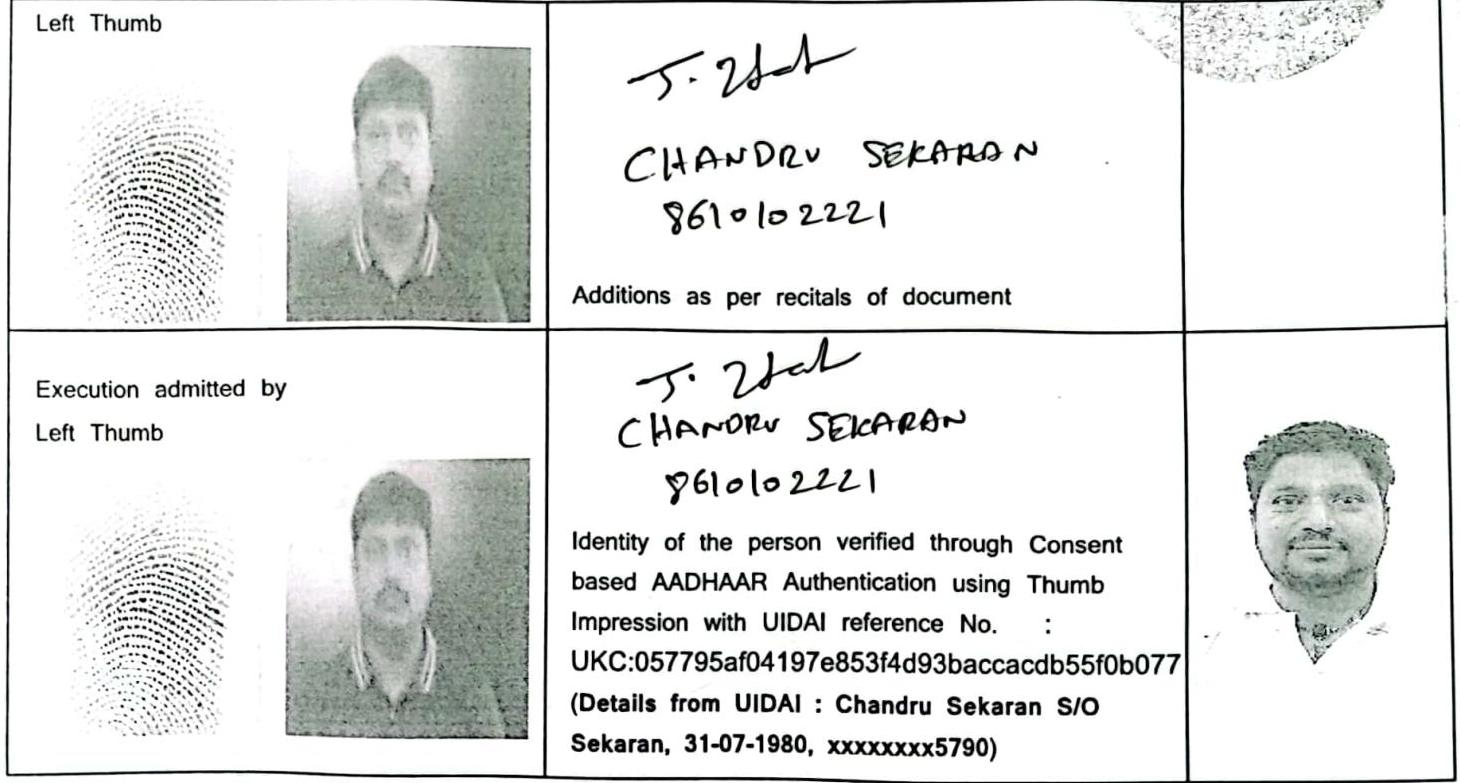 Left Thumb
CHANDRU SEKARAN
8610102221
Additions as per recitals of document
Execution admitted by
Left Thumb
CHANDRU SEKARAN
8610102221
Identity of the person verified through Consent
based AADHAAR Authentication using Thumb
Impression with UIDAI reference No. :
UKC:057795af04197e853f4d93baccacdb55f0b077
(Details from UIDAI : Chandru Sekaran S/O
Sekaran, 31-07-1980, xxxxxxxx5790)